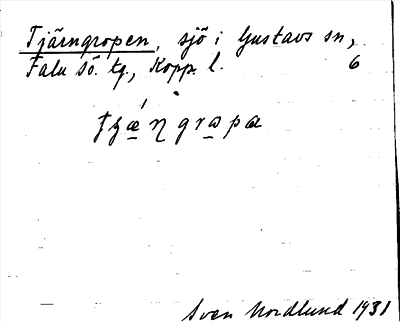 Tjärngropen, sjö i Gustavs sn,
Falu sö. tg., Kopp. l. 6
tjǽ̱ŋgra̱pa
Sven Nordlund 1931